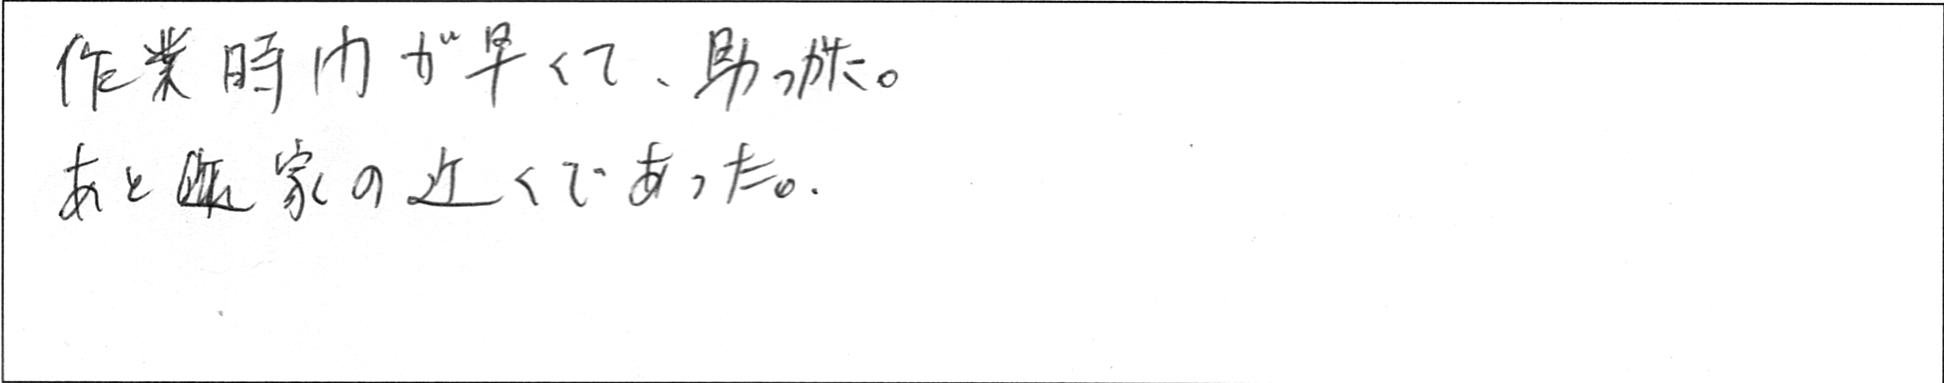 作業時間が早くて、助かった。
あと家の近くであった。